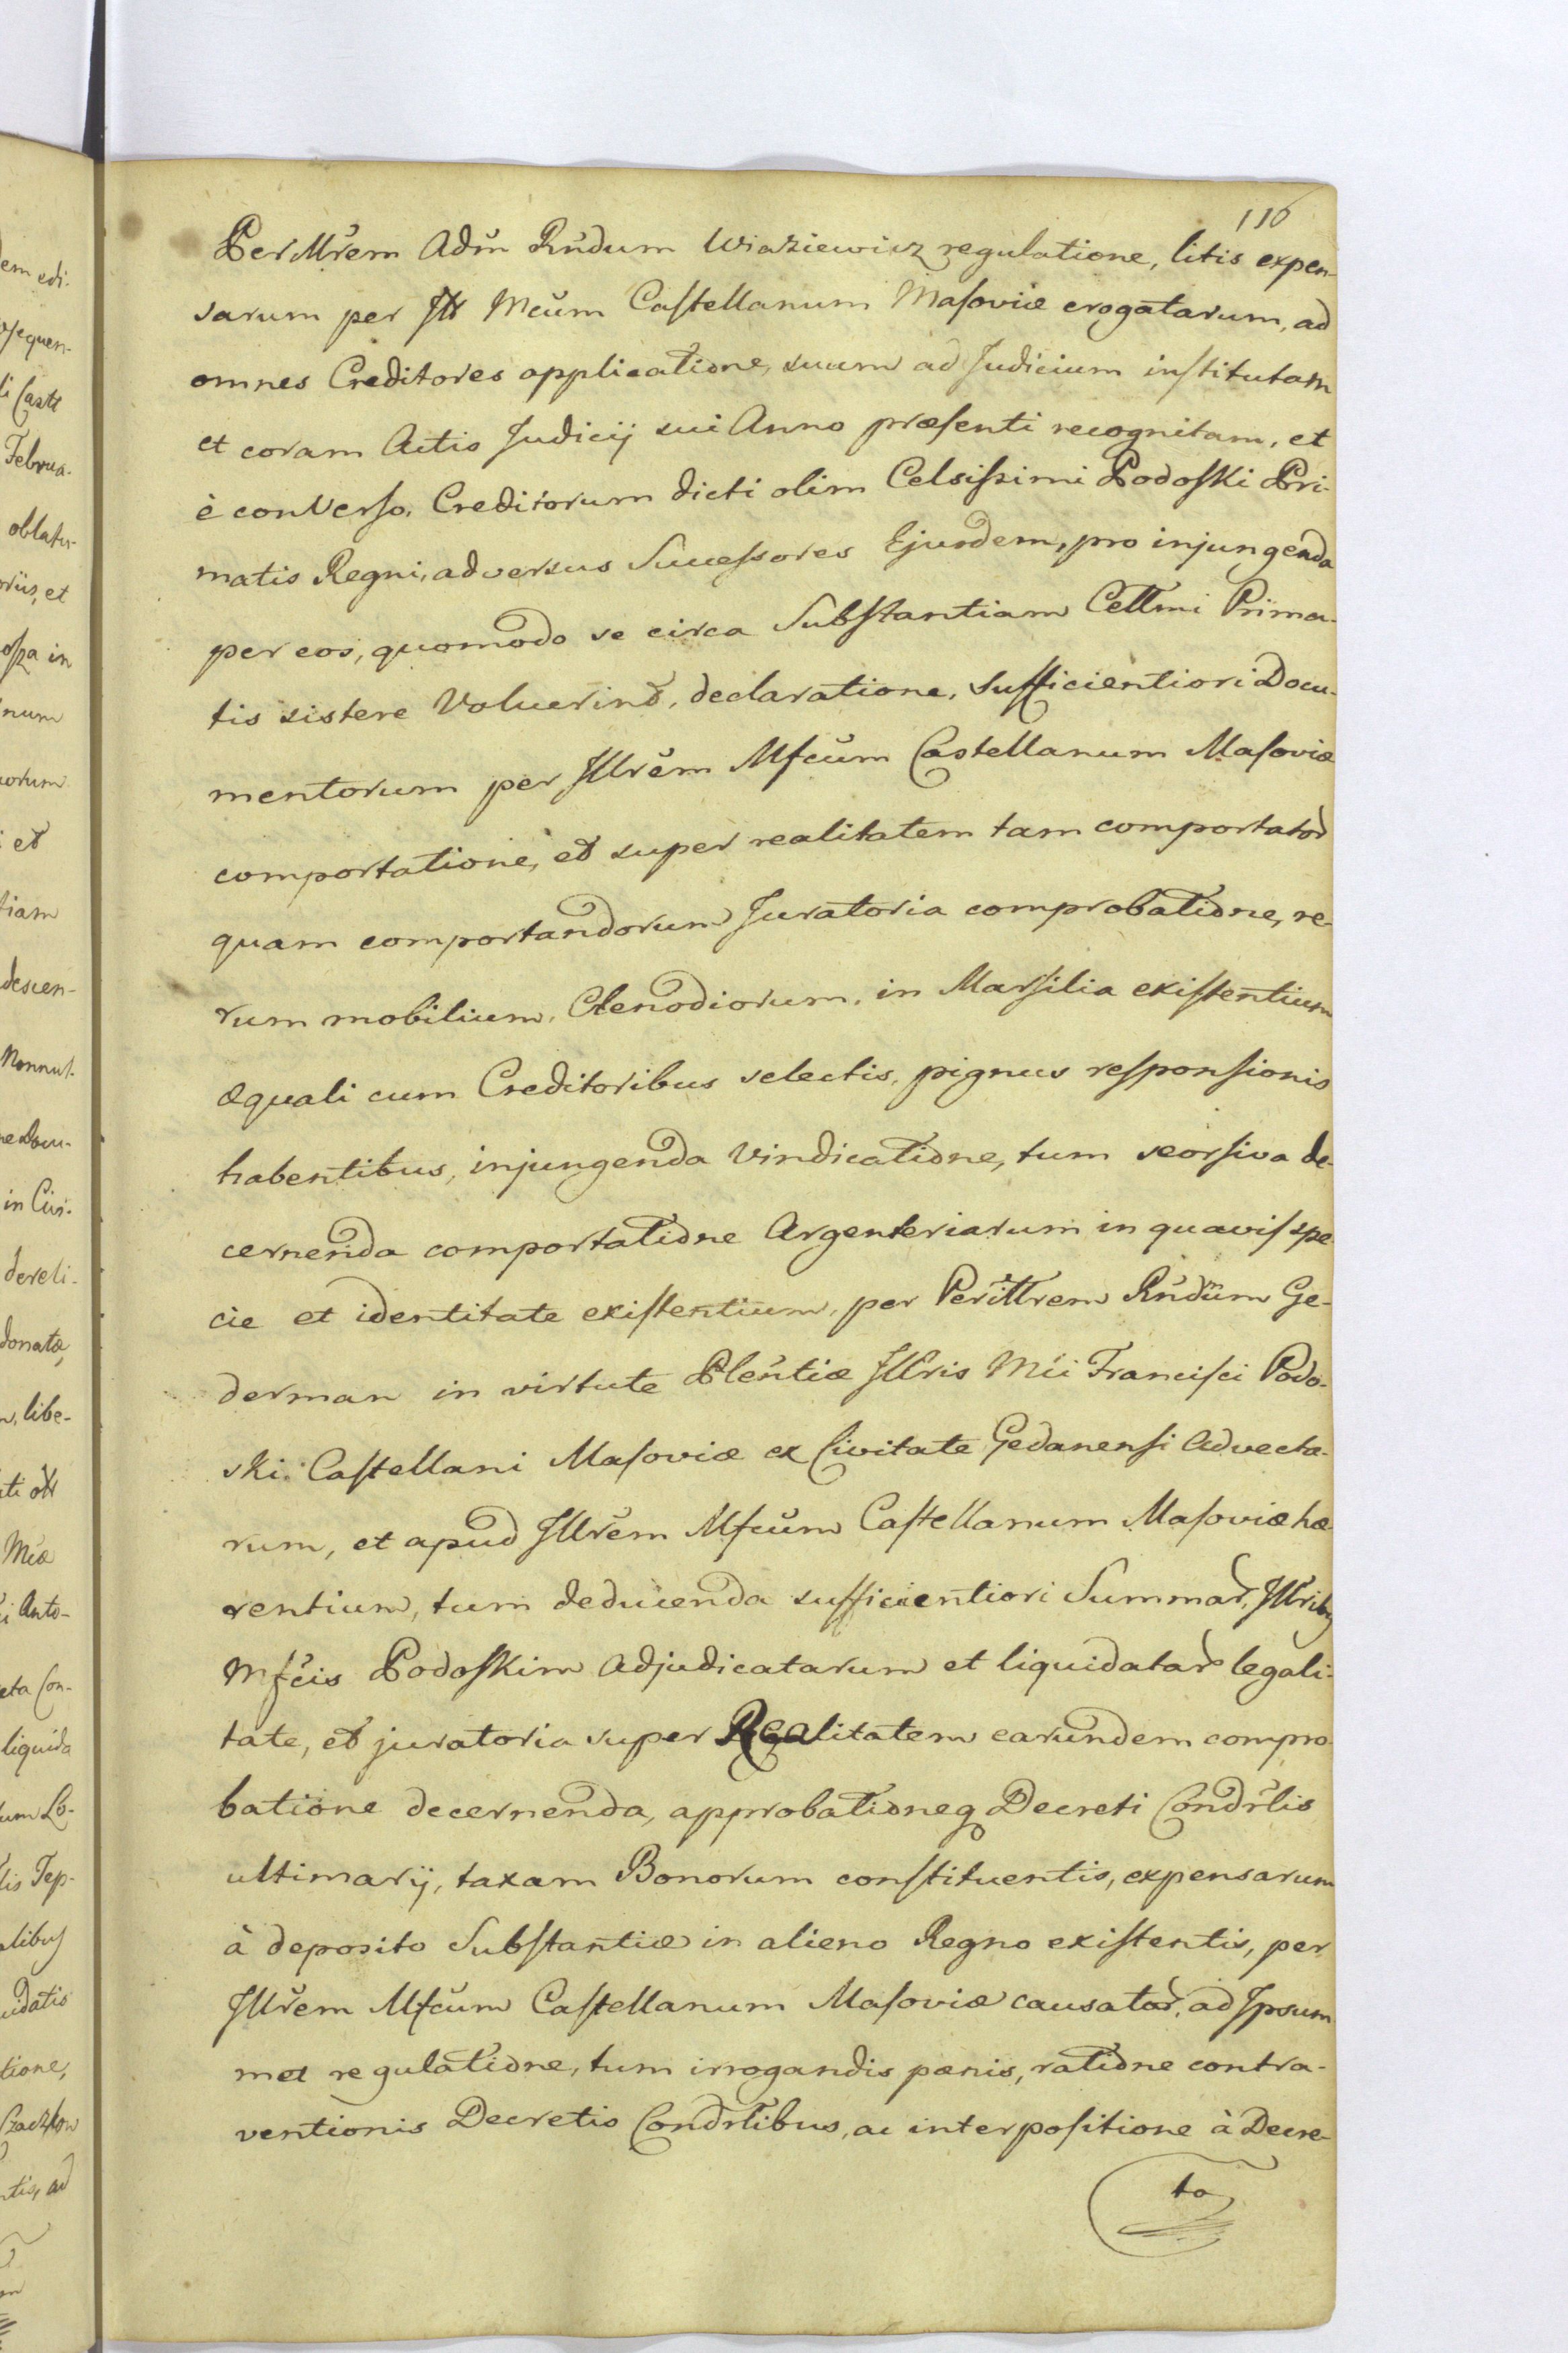 116
Per Mrem Adm Rndum Wiaziewicz regulatione, litis expen-
sarum per Ill Mcum Castellanum Masoviæ erogatarum, ad
omnes Creditores applicatione, suum ad Judicium institutam
et coram Actis Judicij sui Anno præsenti recognitam, et
è converso, Creditorum dicti olim Celsissimi Podoski Pri-
matis Regni, adversus Successores Ejusdem, pro injungenda
per eos, quomodo se circa Substantiam Cellmi Prima-
tis sistere voluerint, declaratione, sufficientiori Docu-
mentorum per Illrem Mfcum Castellanum Masoviæ
comportatione, et super realitatem tam comportator
quam comportandorum Juratoria comprobatione, re-
rum mobilium, Clenodiorum, in Marsilia existentium
æquali cum Creditoribus selectis, pignus responsionis
habentibus, injungenda vindicatione, tum seorsiva de-
cernenda comportatione Argenteriarum in quavis spe
cie et identitate existentium, per Perillrem Rndum Ge-
derman in virtute Plentiæ Illris Mci Francisci Podo-
ski Castellani Masoviæ ex Civitate Gedanensi advecta-
rum, et apud Illrem Mfcum Castellanum Masoviæ hæ
rentium, tum deducenda sufficientiori Summar, Illribus
Mfcis Podoskim adjudicatarum et liquidatar legali-
tate, et juratoria super Realitatem earundem compro
batione decernenda, approbationeq Decreti Condrlis
ultimarij, taxam Bonorum constituentis, expensarum
à deposito Substantiæ in alieno Regno existentis, per
Illrem Mfcum Castellanum Masoviæ causatar, ad Ipsum
met regulatione, tum irrogandis pænis, ratione contra-
ventionis Decretis Condrlibus, ac interpositione à Decre-
to